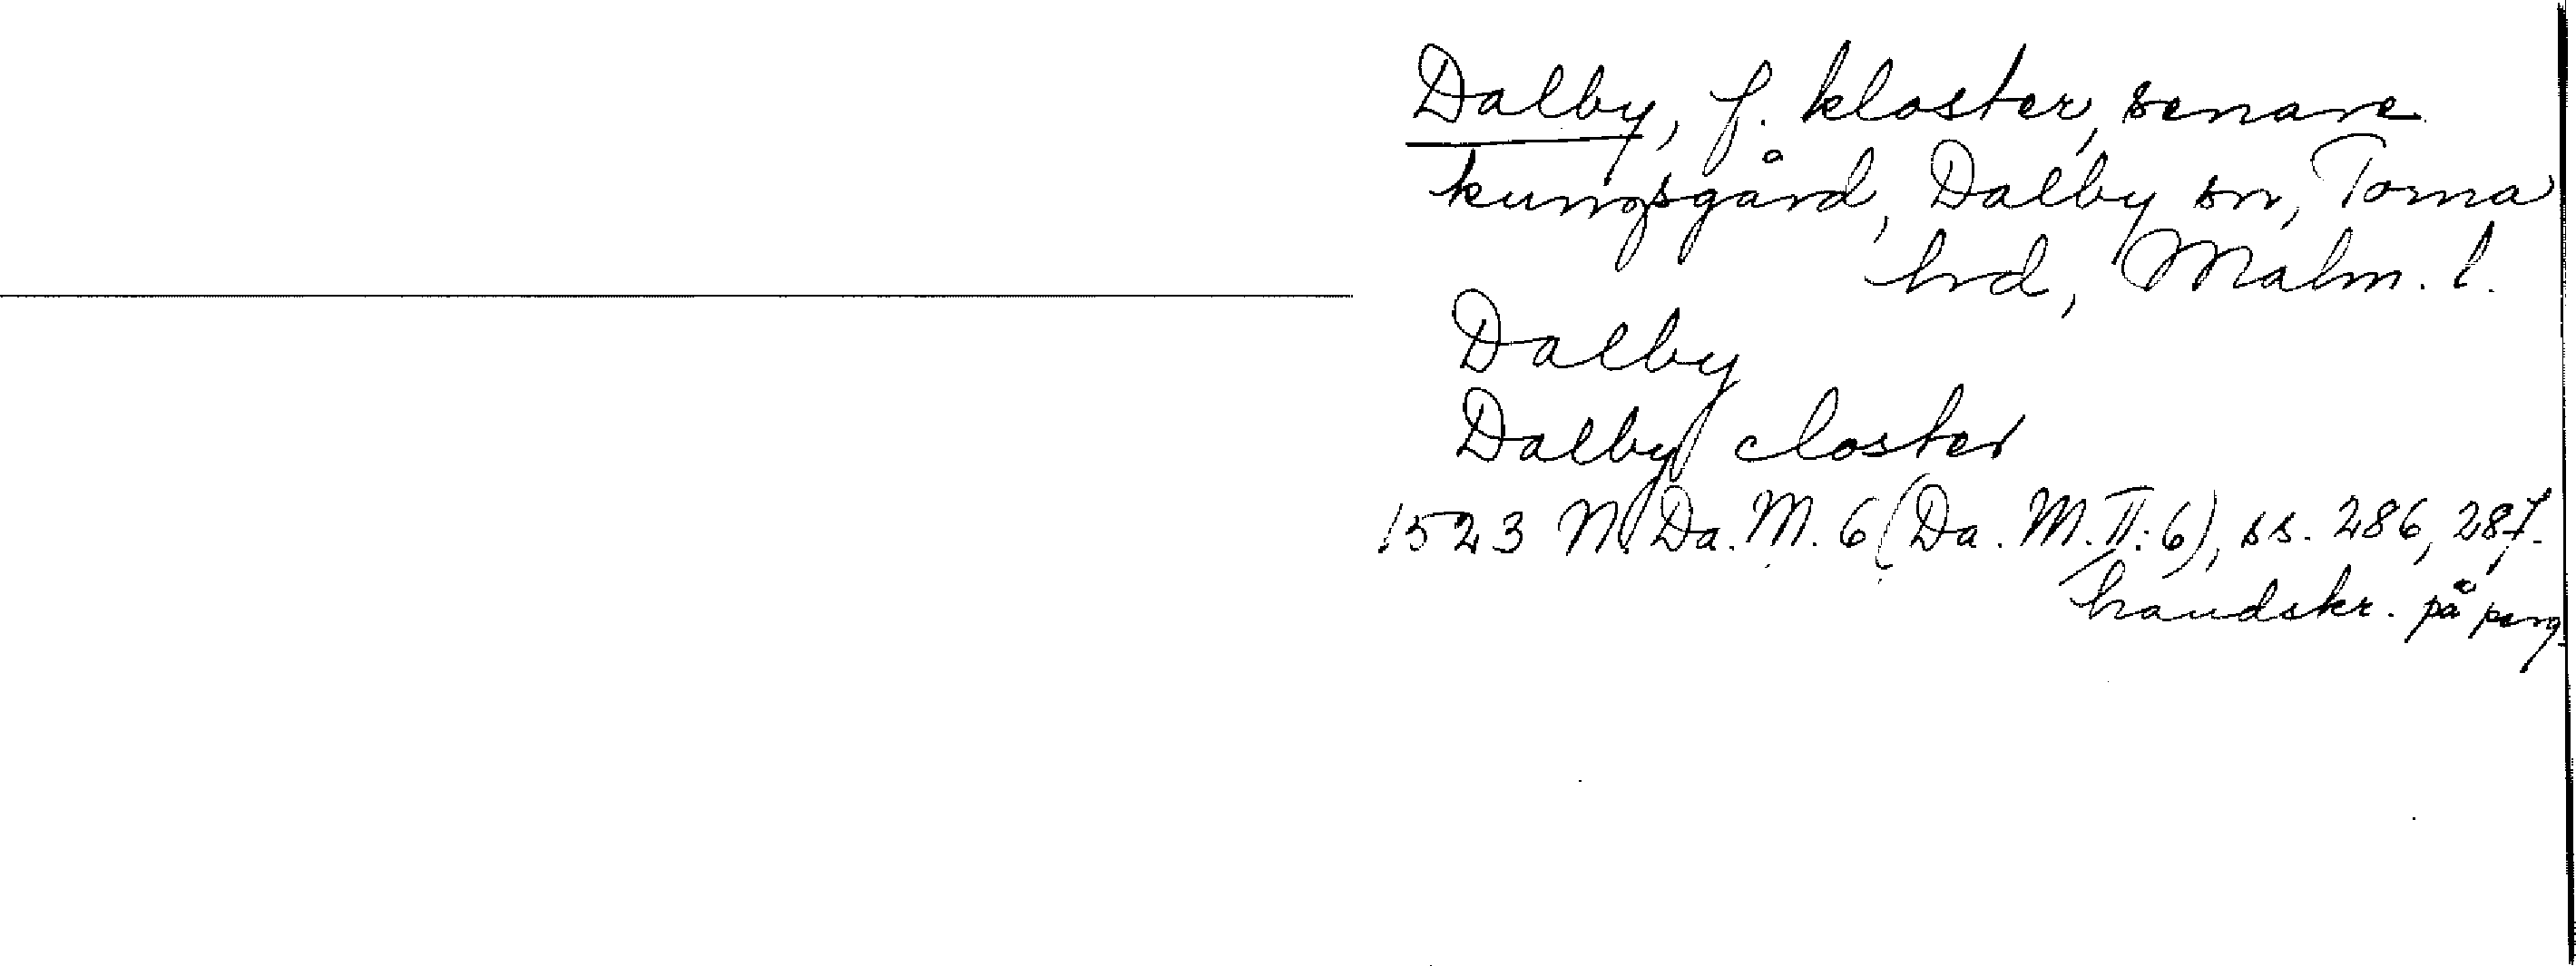 Dalby, f. kloster, senare
kungsgård, Dalby sn, Torna
hd, Malm. l.
Dalby
Dalby closter
1523 N. Da. M. 6 (Da. M. II: 6), ss. 286, 287.
handskr. på perg.